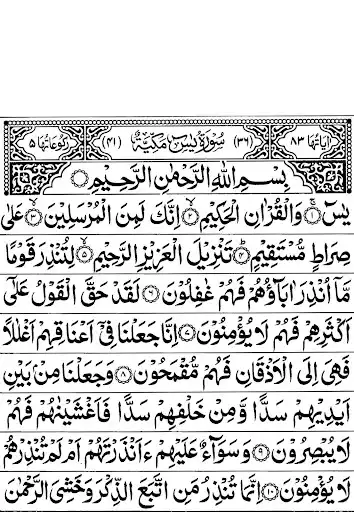 اٰيَاتُهَا ٨٣ (٣٦) سُوْرَةُ يٰسٓ مَكِّيَّةٌ (٤١) رُكُوْعَاتُهَا ٥
بِسْمِ اللّٰهِ الرَّحْمٰنِ الرَّحِيْمِ ۝
يٰسٓ ۝١ وَالْقُرْاٰنِ الْحَكِيْمِ ۝٢ اِنَّكَ لَمِنَ الْمُرْسَلِيْنَ ۝٣ عَلٰى
صِرَاطٍ مُّسْتَقِيْمٍ ۝٤ تَنْزِيْلَ الْعَزِيْزِ الرَّحِيْمِ ۝٥ لِتُنْذِرَ قَوْمًا
مَّاۤ اُنْذِرَ اٰبَآؤُهُمْ فَهُمْ غٰفِلُوْنَ ۝٦ لَقَدْ حَقَّ الْقَوْلُ عَلٰۤى
اَكْثَرِهِمْ فَهُمْ لَا يُؤْمِنُوْنَ ۝٧ اِنَّا جَعَلْنَا فِيْۤ اَعْنَاقِهِمْ اَغْلٰلًا
فَهِيَ اِلَى الْاَذْقَانِ فَهُمْ مُّقْمَحُوْنَ ۝٨ وَجَعَلْنَا مِنْۢ بَيْنِ
اَيْدِيْهِمْ سَدًّا وَّمِنْ خَلْفِهِمْ سَدًّا فَاَغْشَيْنٰهُمْ فَهُمْ
لَا يُبْصِرُوْنَ ۝٩ وَسَوَآءٌ عَلَيْهِمْ ءَاَنْذَرْتَهُمْ اَمْ لَمْ تُنْذِرْهُمْ
لَا يُؤْمِنُوْنَ ۝١٠ اِنَّمَا تُنْذِرُ مَنِ اتَّبَعَ الذِّكْرَ وَخَشِيَ الرَّحْمٰنَ